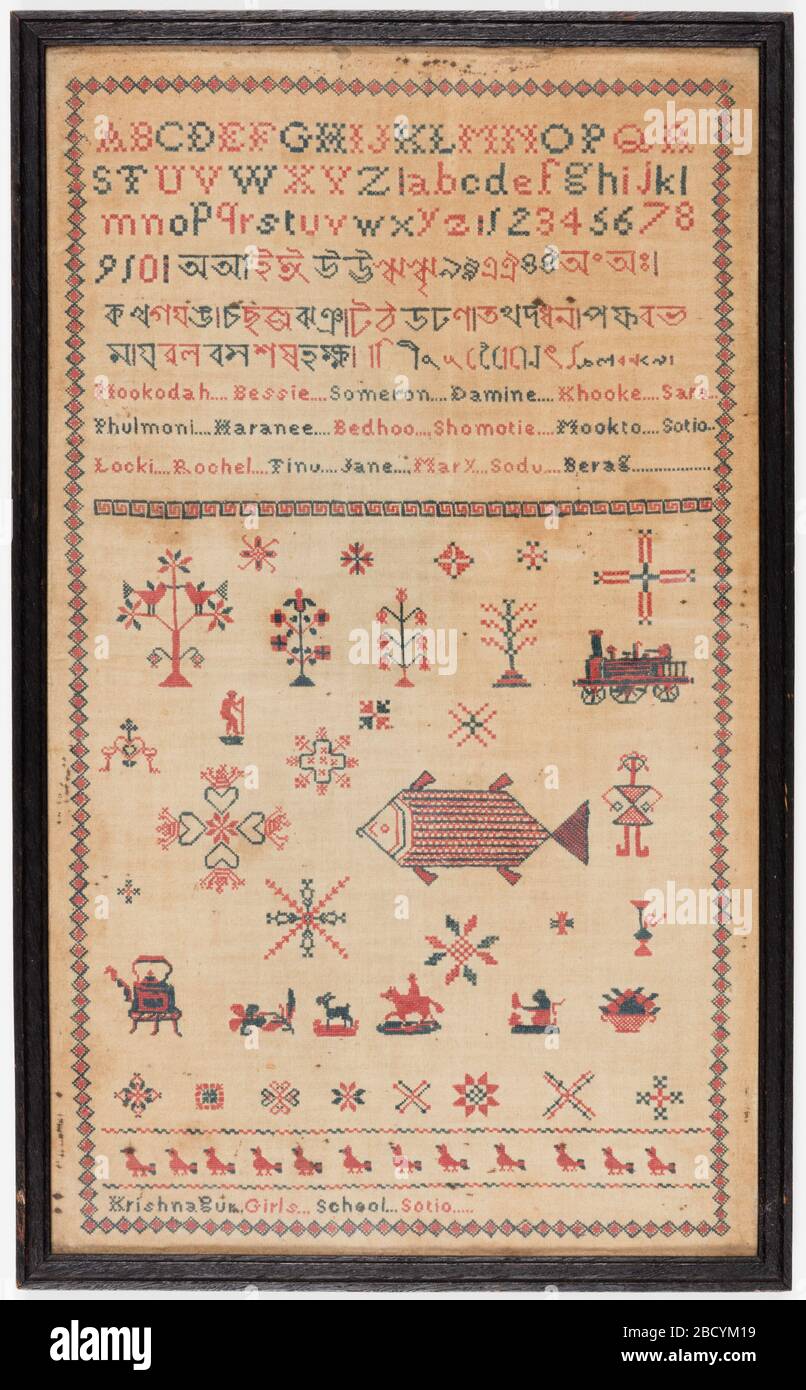 ABCDEFGHIJKLMNOPQR
STUVWXYZ|abcdefghijkl
mnopqrstuvwxyz|12345678
910|অআইঈউঊঋৠঌৡএঐওঔঅংঅঃ|
কখগঘঙ|চছজঝঞ|টঠডঢণ|তথদধন|পফবভ
ম|যরলবসশষহক্ষ|
Mookodah.... Bessie.... Someron.... Damine.... Khooke.... Sara..
Phulmoni.... Haranee.... Bedhoo... Shomotie.... Mookto.... Sotio..
Locki.... Rochel.... Tinu.... Jane.... Mary.... Sodu.... Berag..................
Krishnagur.. Girls... School... Sotio.....
alamy
Image ID: 2BCYM19
www.alamy.com